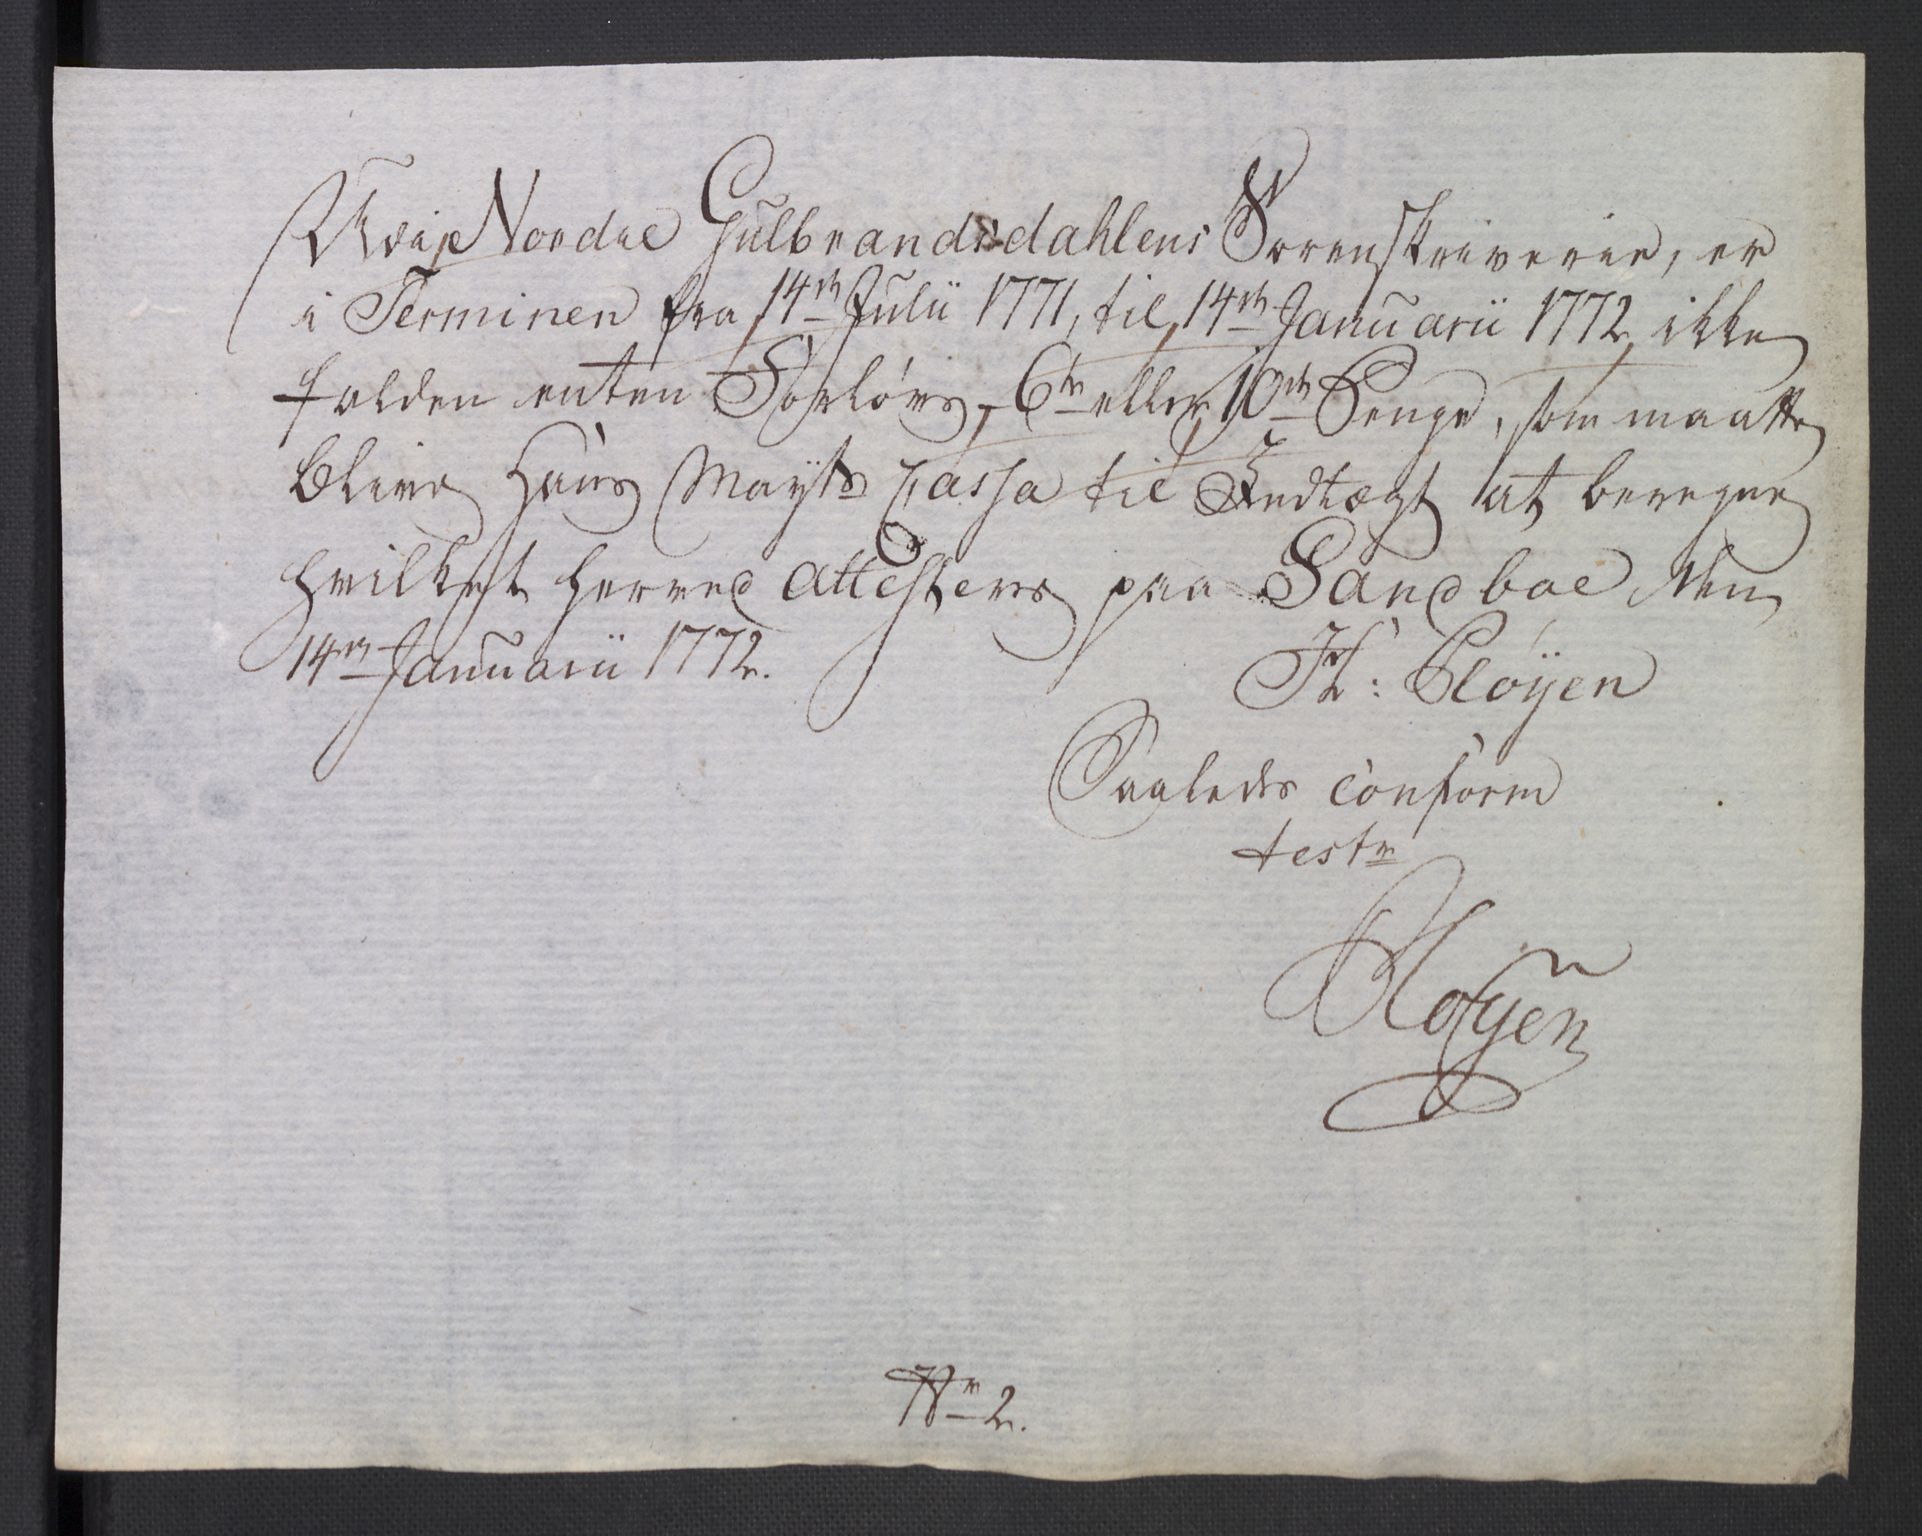 Ved Nordre Gulbrandsdahlens Sorenskriverie, er
i Terminen fra 14de Julii 1771, til 14de Januarii 1772, ikke
falden enten Forlovs, 6te eller 10de Penge, som maatte
blive Hans Mayts Cassa til Indtægt at beregne
hvilket herved attesteres paa Sandboe den
14de Januarii 1772.
H: Pløyen
Saaledes conform
test
Pløyen
No 2.